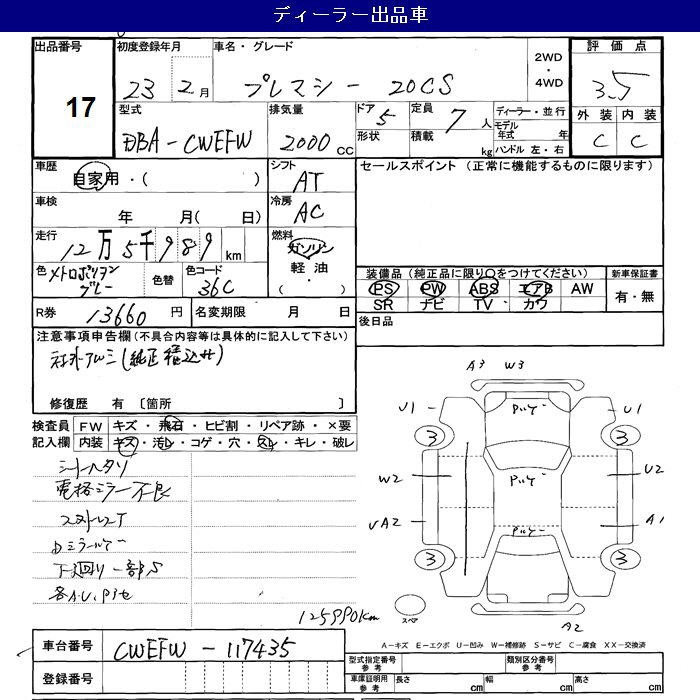 ディーラー出品車
出品番号 初度登録年月 車名・グレード 評価点
17
23 2月 プレマシー 20CS 2WD・4WD 3.5
型式 排気量 ドア 定員 ディーラー・並行 外装 内装
DBA-CWEFW 2000cc 5 7人 モデル年式 年 C C
形状 積載 kg ハンドル 左・右
車歴 シフト セールスポイント(正常に機能するものに限ります)
自家用・( ) AT
車検 冷房
年 月( 日) AC
走行 燃料
12万5千989km ガソリン
軽油
色 メトロポリタングレー 色替 色コード 36C ・( )
装備品(純正品に限り○をつけてください) 新車保証書
PS PW ABS エアB AW 有・無
SR ナビ TV カワ
R券 13660円 名変期限 月 日 後日品
注意事項申告欄(不具合内容等は具体的に記入して下さい)
社外アルミ(純正積込み)
修復歴 有 [箇所 ]
検査員 FW キズ・飛石・ヒビ割・リペア跡・×要
記入欄 内装 キズ・汚レ・コゲ・穴・スレ・キレ・破レ
シートヘタリ
電格ミラー不良
下廻り一部S
各AU、
125990km
A3 W3
U1 U1
3 3
W2 U2
UA2 A1
3 3
スペア
A2
A-キズ E-エクボ U-凹み W-補修跡 S-サビ C-腐食 XX-交換済
車台番号 CWEFW-117435
登録番号
型式指定番号 参考 類別区分番号 参考
車庫証明用 参考 長さ cm 幅 cm 高さ cm